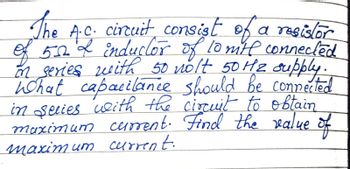 The A.C. circuit consist of a resistor
of 5Ω & inductor of 10 mH connected
in series with 50 volt 50 Hz supply.
What capacitance should be connected
in series with the circuit to obtain
maximum current. Find the value of
maximum current.